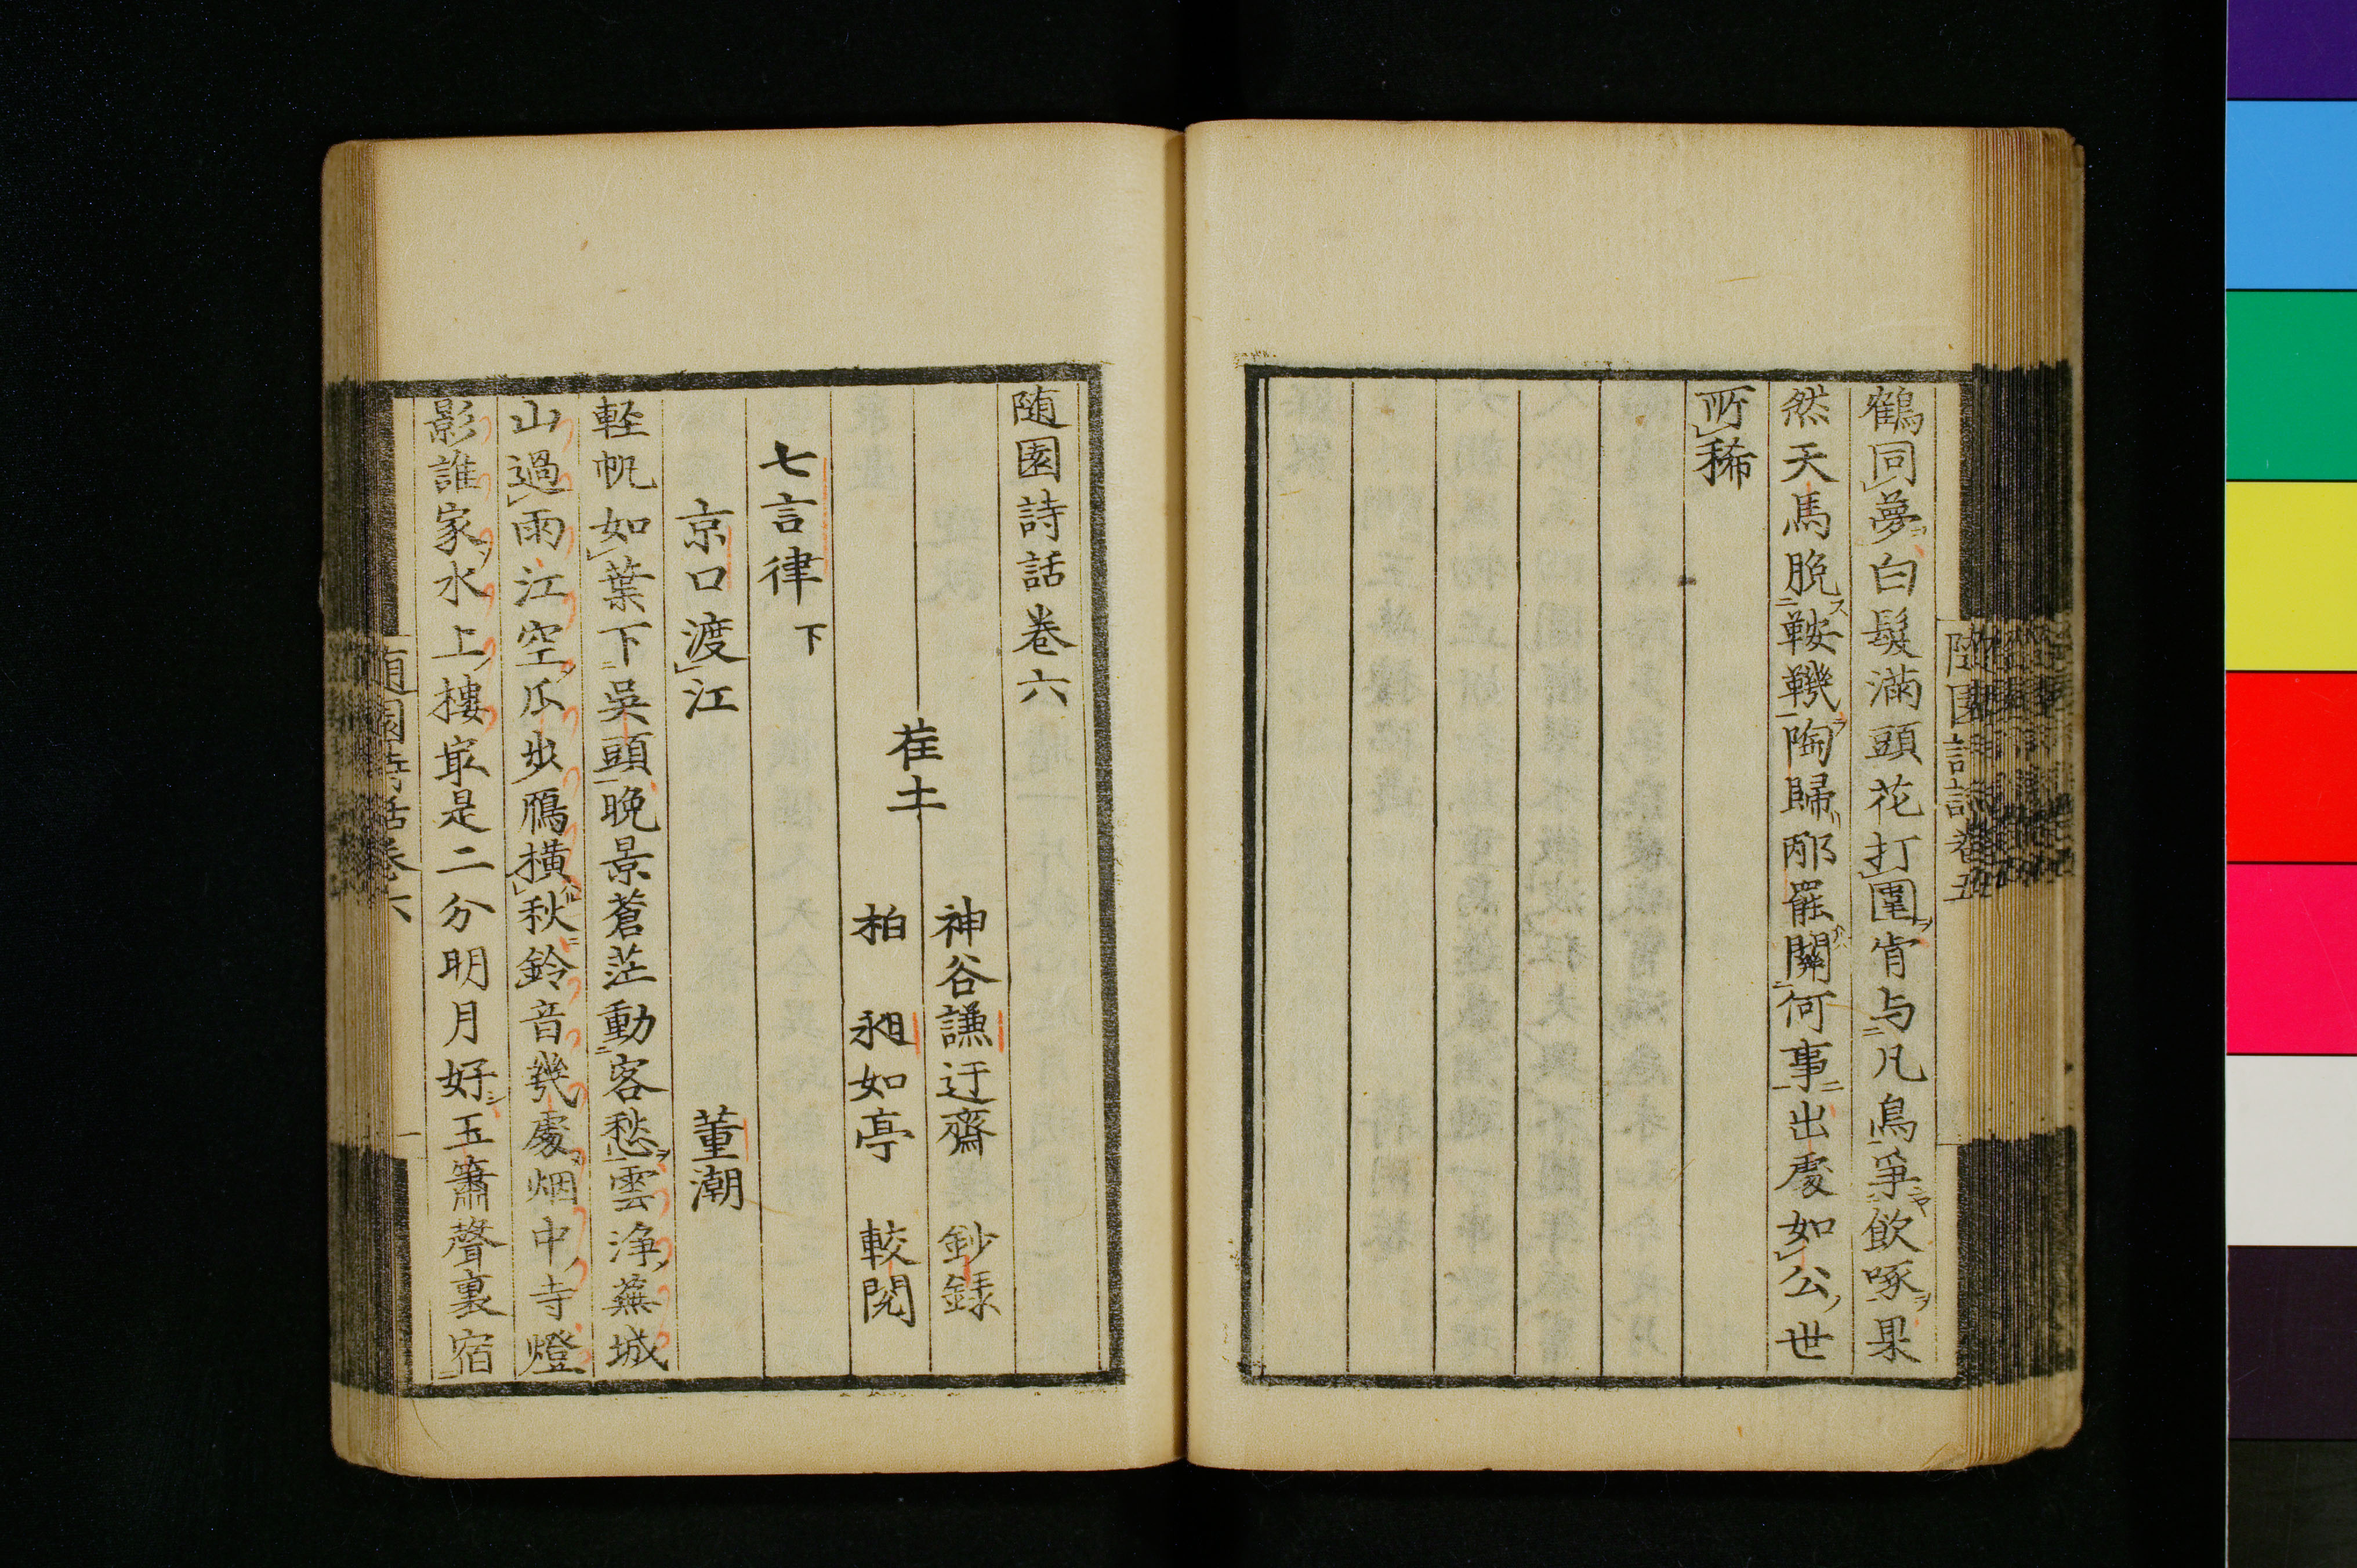 鶴同夢白髮滿頭花打圍肯与凡鳥爭飲啄果
然天馬脫鞍鞿陶歸邴罷關何事出處如公世
所稀
随園詩話卷五
随園詩話卷六
荏土
神谷謙迂齋 鈔録
柏 昶如亭 較閲
七言律 下
京口渡江 董潮
輕帆如葉下吳頭晚景蒼茫動客愁雲淨蕪城
山過雨江空瓜步鴈橫秋鈴音幾處烟中寺燈
影誰家水上樓㝡是二分明月好玉簫聲裏宿
随園詩話卷六
一